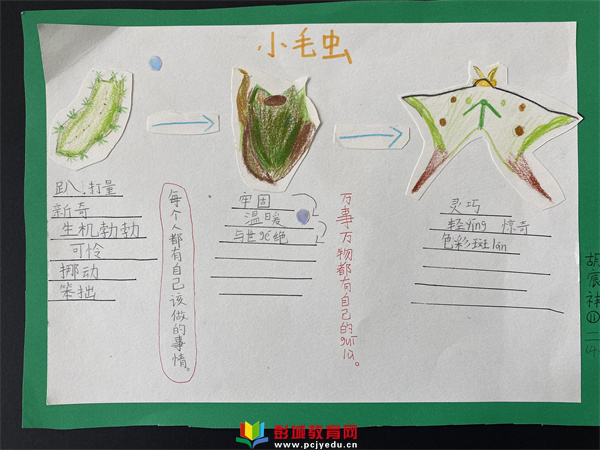 小毛虫
趴、打量
新奇
生机勃勃
可怜
挪动
笨拙
每个人都有自己该做的事情。
牢固
温暖
与世gé绝
万事万物都有自己的guī lǜ。
灵巧
轻yíng 惊奇
色彩斑lán
胡宸
⑪
二
彭城教育网
www.pcjyedu.cn